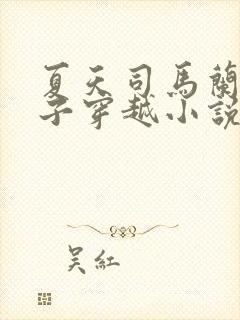 夏天司馬蘭
子穿越小說
吴紅